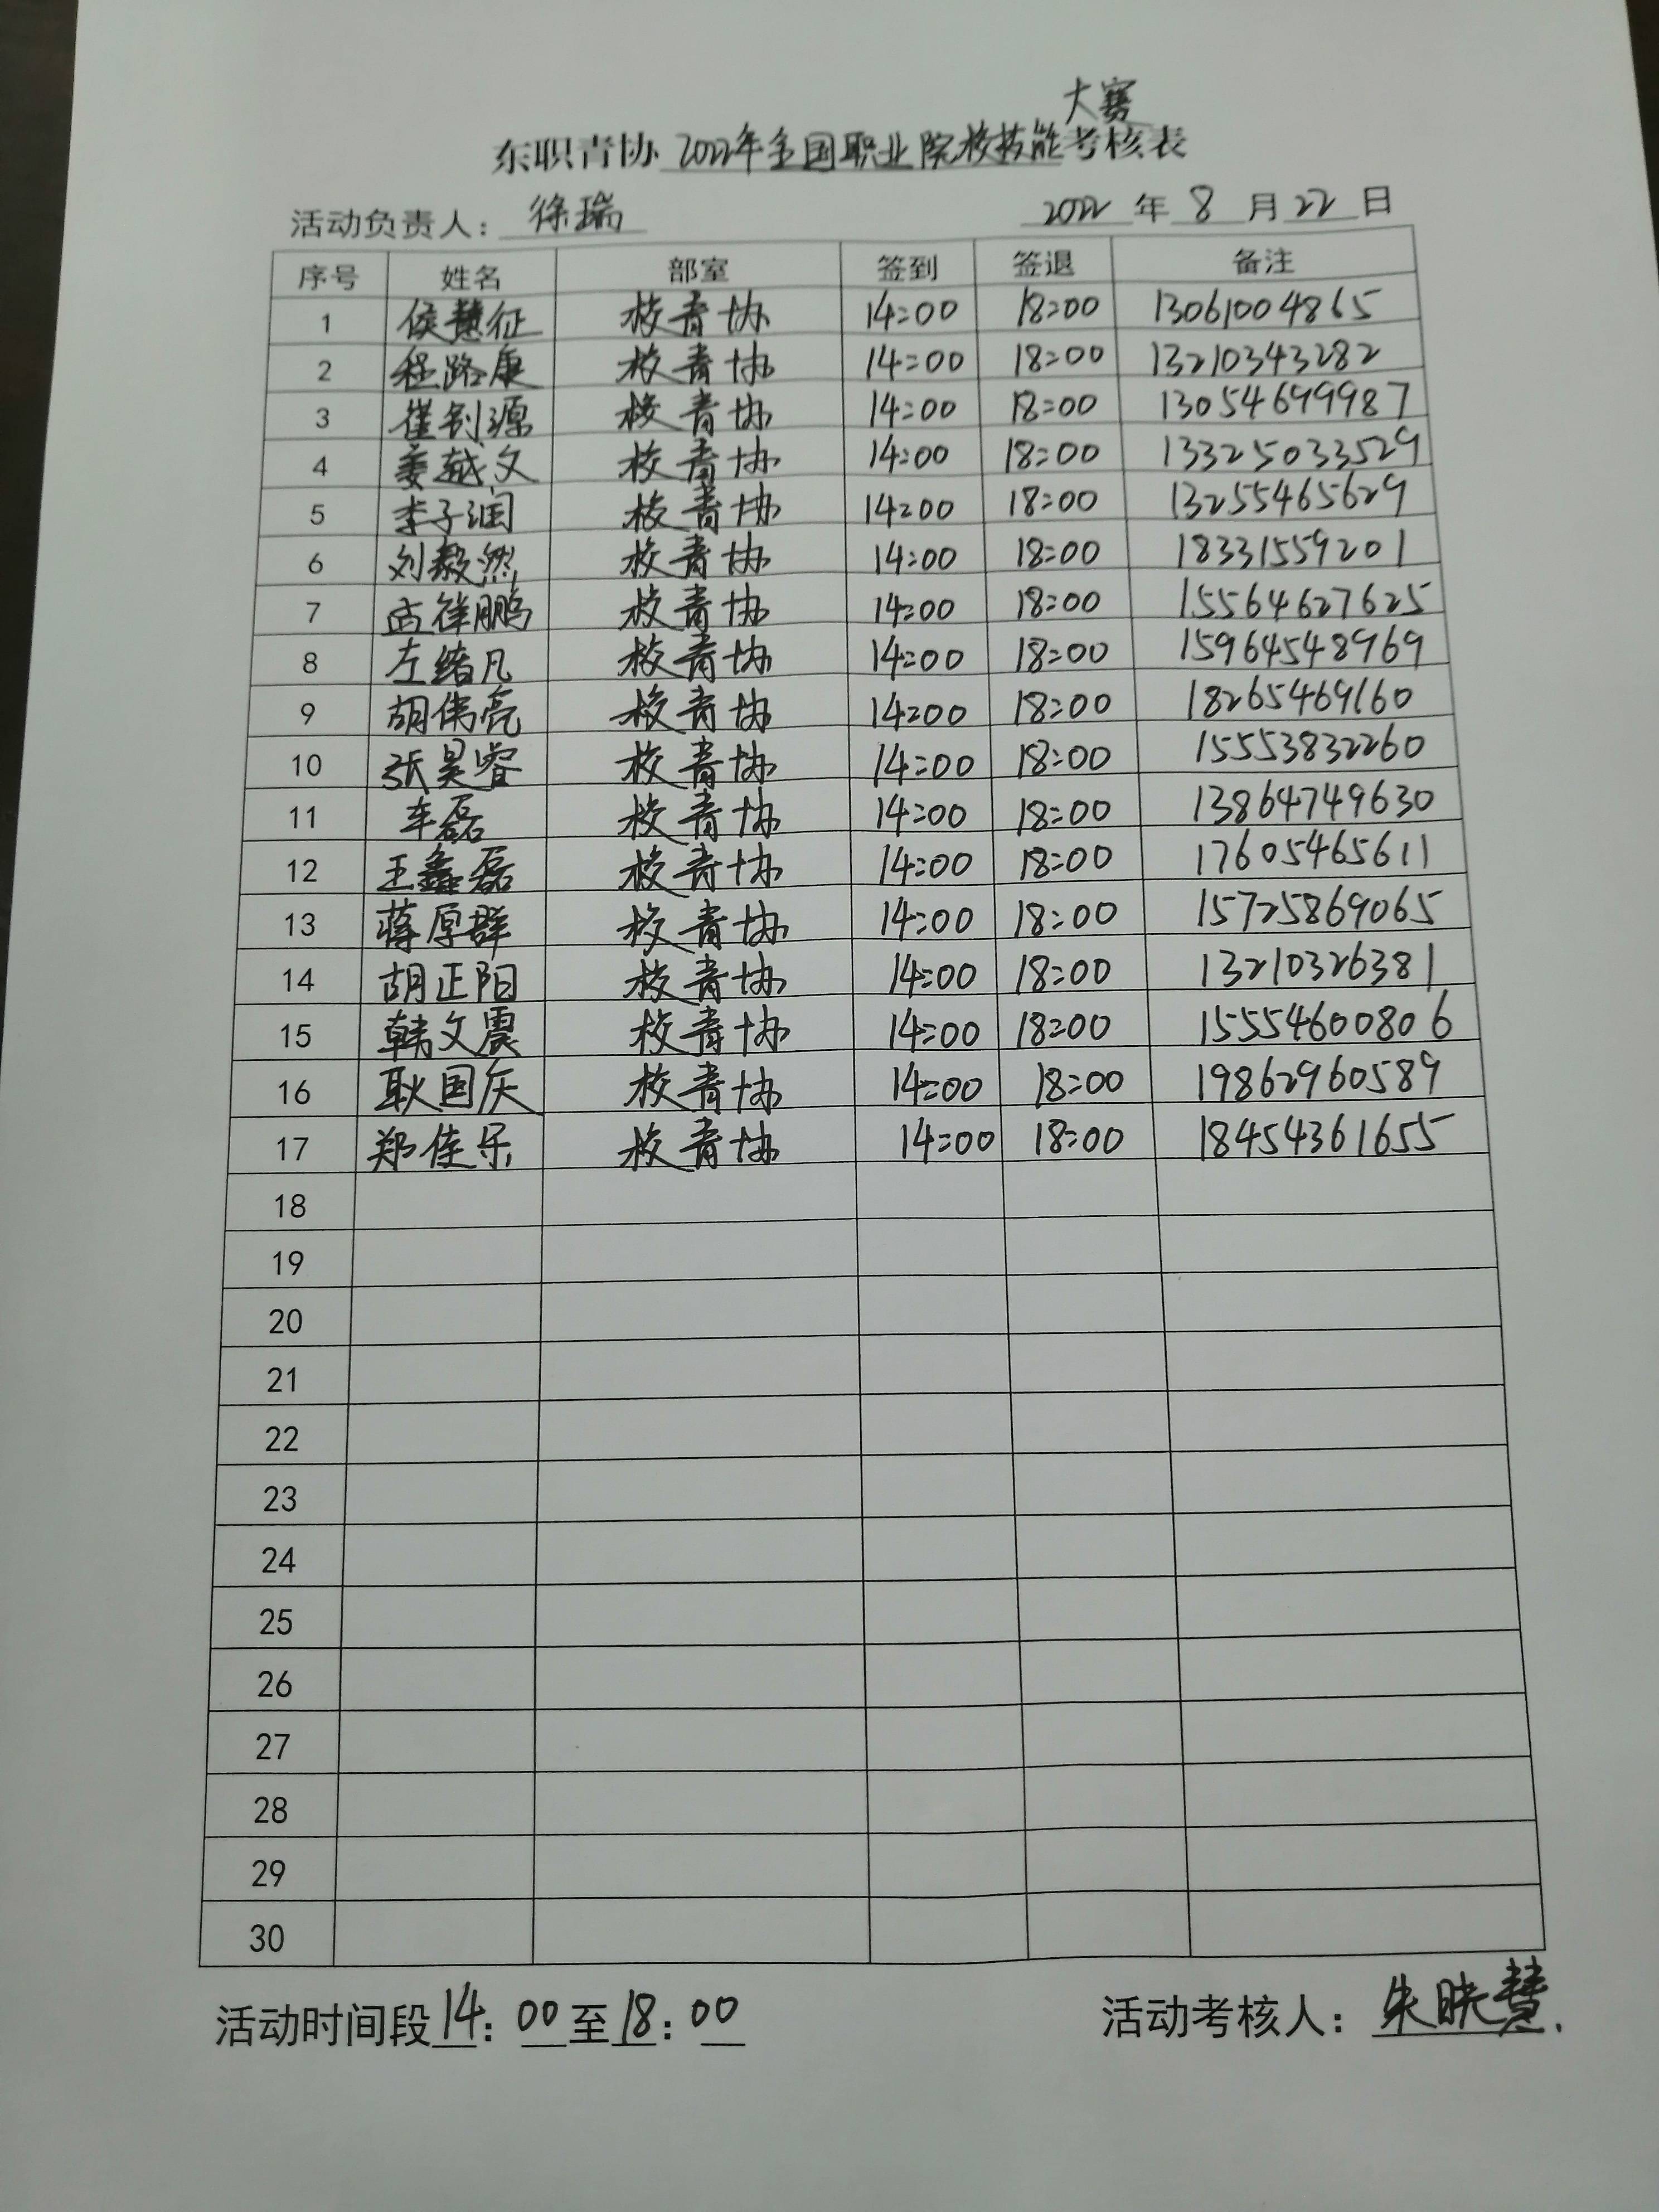 大赛
东职青协 2022年全国职业院校技能考核表
活动负责人：徐瑞 2022年8月22日
序号 姓名 部室 签到 签退 备注
1 侯慧征 校青协 14:00 18:00 13061004865
2 程路康 校青协 14:00 18:00 13210343282
3 崔钊源 校青协 14:00 18:00 13054699987
4 姜越文 校青协 14:00 18:00 133325033529
5 李子润 校青协 14:00 18:00 13255465629
6 刘毅然 校青协 14:00 18:00 18331559201
7 校青协 14:00 18:00 15564627625
8 左绪凡 校青协 14:00 18:00 15964548969
9 胡伟亮 校青协 14:00 18:00 18265469160
10 张昊睿 校青协 14:00 18:00 15553832260
11 车磊 校青协 14:00 18:00 13864749630
12 王鑫磊 校青协 14:00 18:00 17605465611
13 蒋原群 校青协 14:00 18:00 15725869065
14 胡正阳 校青协 14:00 18:00 13210326381
15 韩文震 校青协 14:00 18:00 15554600806
16 耿国庆 校青协 14:00 18:00 19862960589
17 郑佳乐 校青协 14:00 18:00 18454361655
18
19
20
21
22
23
24
25
26
27
28
29
30
活动时间段14：00至18：00 活动考核人：朱映慧.